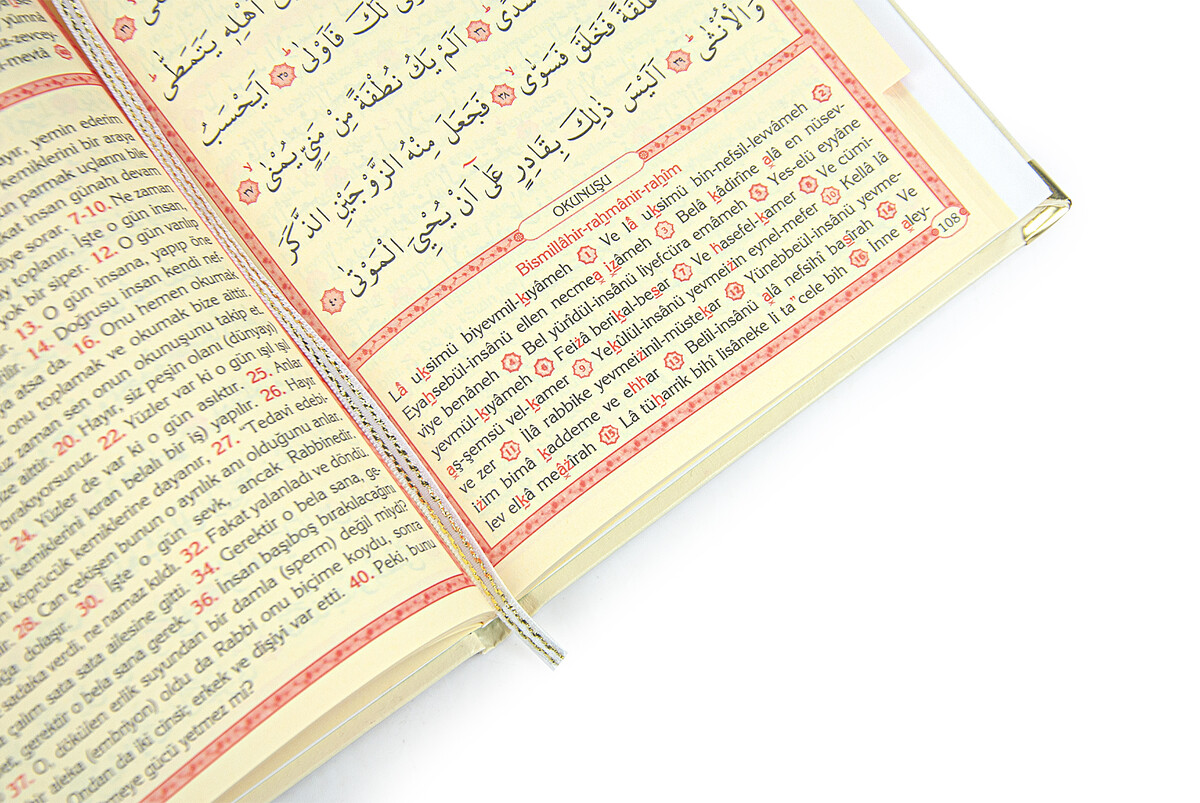 yümnâ
k-mevtâ
ayır, yemin ederim
kemiklerini bir araya
un parmak uçlarını bile
akat insan günahı devam
diye sorar. 7-10. Ne zaman
toplanır, İşte o gün insan,
yok bir siper. 12. O gün varılıp
13. O gün insana, yapıp öne
14. Doğrusu insan kendi nef-
ya atsa da. 16. Onu hemen okumak
onu toplamak ve okumak bize aittir.
zaman sen onun okunuşunu takip et.
aittir. 20. Hayır, siz peşin olanı (dünyayı)
bırakıyorsunuz. 22. Yüzler var ki o gün ışıl ışıl
24. Yüzler de var ki o gün asıktır. 25. Anlar
kemiklerini kıran belalı bir iş) yapılır. 26. Hayır
köprücük kemiklerine dayanır, 27. "Tedavi edebi-
28. Can çekişen bunun o ayrılık anı olduğunu anlar.
dolaşır. 30. İşte o gün sevk, ancak Rabbinedir.
sadaka verdi, ne namaz kıldı. 32. Fakat yalanladı ve döndü.
çalım sata sata ailesine gitti. 34. Gerektir o bela sana, ge-
gerektir o bela sana gerek. 36. İnsan başıboş bırakılacağını
37. O, dökülen erlik suyundan bir damla (sperm) değil miydi?
bir aleka (embriyon) oldu da Rabbi onu biçime koydu, sonra
Ondan da iki cinsi; erkek ve dişiyi var etti. 40. Peki, bunu
meye gücü yetmez mi?
اَهْلِهٖ يَتَمَطّٰىۜ
لَكَ فَاَوْلٰىۜ ﴿٣٥﴾ اَيَحْسَبُ
سُدًىۜ ﴿٣٦﴾ اَلَمْ يَكُ نُطْفَةً مِنْ مَنِيٍّ يُمْنٰىۙ ﴿٣٧﴾
فَخَلَقَ فَسَوّٰىۙ ﴿٣٨﴾ فَجَعَلَ مِنْهُ الزَّوْجَيْنِ الذَّكَرَ
وَالْاُنْثٰىۜ ﴿٣٩﴾ اَلَيْسَ ذٰلِكَ بِقَادِرٍ عَلٰٓى اَنْ يُحْيِيَ الْمَوْتٰى ﴿٤٠﴾
OKUNUŞU
Bismillâhir-rahmânir-rahîm
Lâ uksimü biyevmil-kıyâmeh 1 Ve lâ uksimü bin-nefsil-levvâmeh 2
Eyahsebül-insânü ellen necmea izâmeh 3 Belâ kâdirîne alâ en nüsev-
viye benâneh 4 Bel yürîdül-insânü liyefcüra emâmeh 5 Yes-elü eyyâne
yevmül-kıyâmeh 6 Feizâ berikal-besar 7 Ve hasefel-kamer 8 Ve cümi-
aş-şemsü vel-kamer 9 Yekûlül-insânü yevmeizin eynel-mefer 10 Kellâ lâ
ve zer 11 İlâ rabbike yevmeizinil-müstekar 12 Yünebbeül-insânü yevme-
izim bimâ kaddeme ve ehhar 13 Belil-insânü alâ nefsihî basîrah 14 Ve
lev elkâ meâzîrah 15 Lâ tüharrik bihî lisâneke li ta"cele bih 16 İnne aley-
108